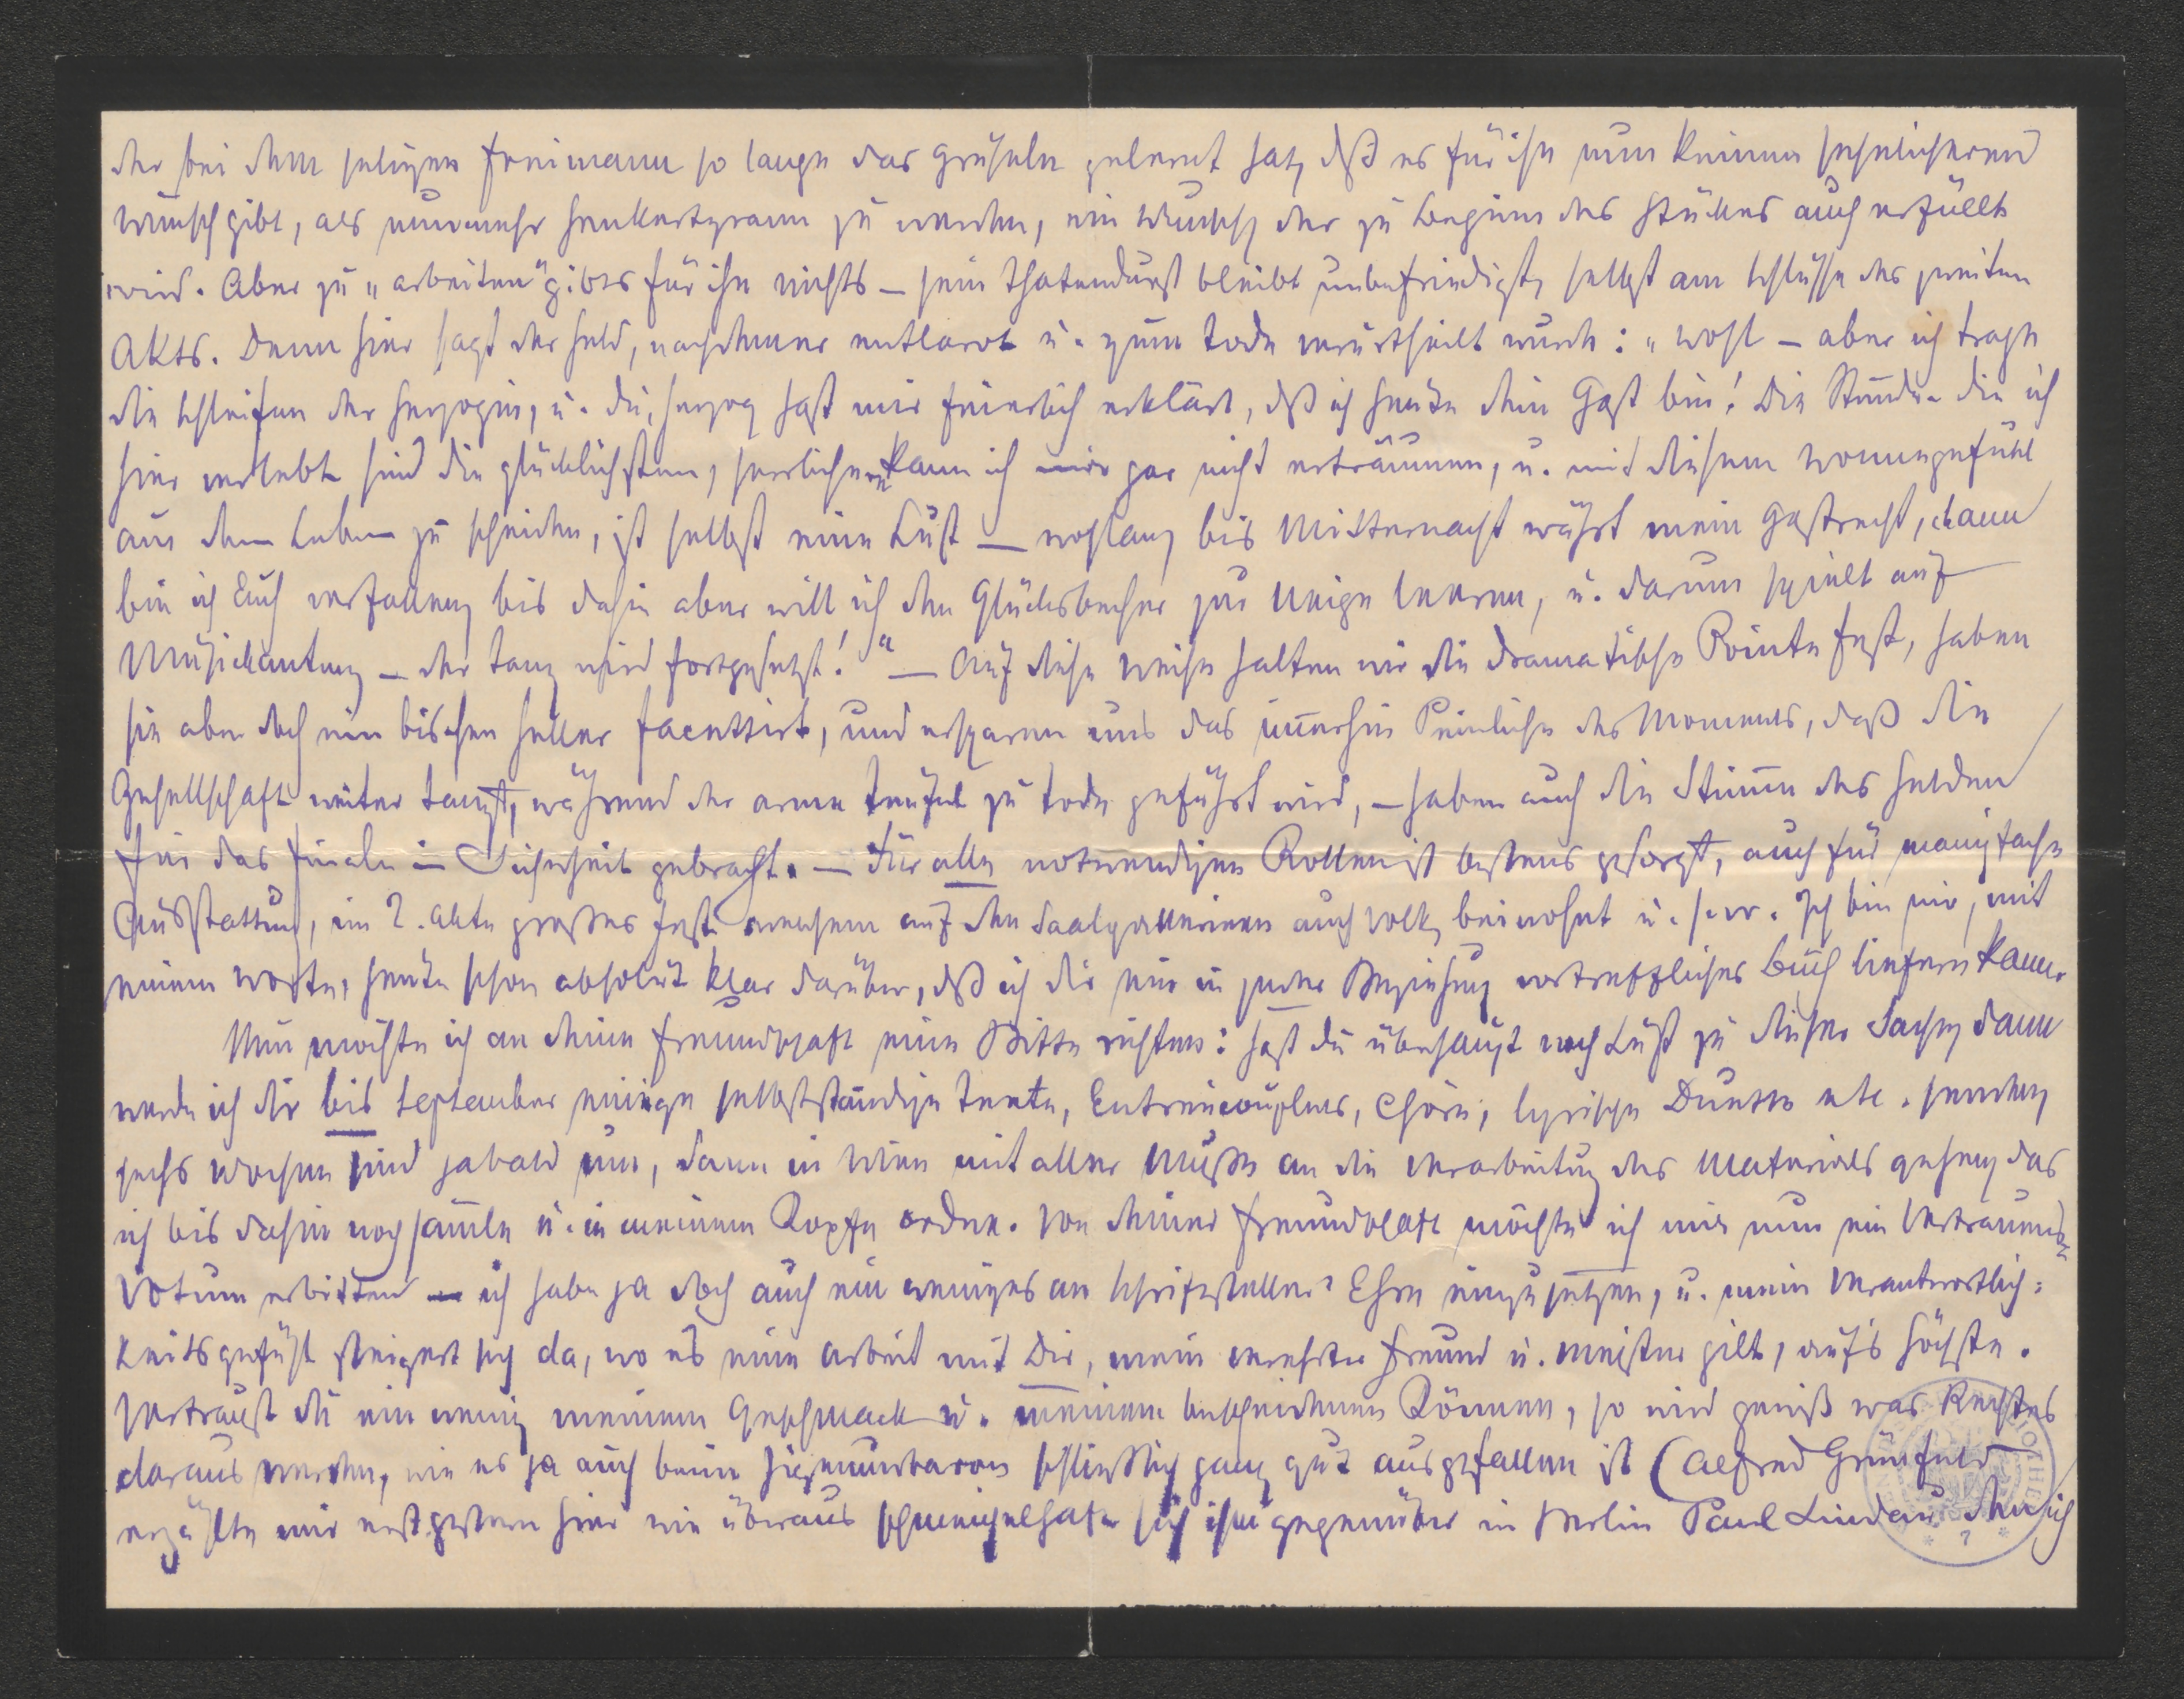 der bei dem seligen Freimann so lange das Gruseln gelernt hat, dß es für ihn nun keinen sehnlicheren
Wunsch gibt, als nunmehr Henkertyrann zu werden, ein Wunsch, der zu Beginn des Stückes auch erfüllt
wird. Aber zu „arbeiten" gibts für ihn nichts – sein Thatendurst bleibt unbefriedigt, selbst am Schlusse des zweiten
Akts. Denn hier sagt der Held, nachdem er entlarvt u. zum Tode verurtheilt wurde: „Wohl – aber ich trage
die Schleifen der Herzogin, u. du, Herzog hast mir feierlich erklärt, dß ich heute dein Gast bin! Die Stunden die ich
hier verlebte sind die glücklichsten, herrlichere kann ich mir gar nicht erträumen, u. mit diesem Wonnegefühl
aus dem Leben zu scheiden, ist selbst eine Lust – wohlan, bis Mitternacht währt mein Gastrecht, dann
bin ich Euch verfallen, bis dahin aber will ich den Glücksbecher zur Neige leeren, u. darum spielt auf
Musikanten, – der Tanz wird fortgesetzt!" – Auf diese Weise halten wir die dramatische Pointe fest, haben
sie aber doch ein bischen heller facettirt, und ersparen uns das im̄erhin Peinliche des Moments, daß die
Gesellschaft weiter tanzt, während der arme Teufel zu Tode geführt wird, – haben auch die Stim̄e des Helden
für das Finale in Sicherheit gebracht. – Für alle notwendigen Rollen ist bestens gesorgt, auch für manigfache
Ausstattung, im 2. Akte großes Fest welchem auf den Saalgallerieen auch Volk, beiwohnt u. s. w. Ich bin mir, mit
einem Worte, heute schon absolut klar darüber, dß ich dir ein in jeder Beziehung vortreffliches Buch liefern kann.
Nun möchte ich an deine Freundschaft eine Bitte richten: hast du überhaupt noch Lust zu dieser Sache, dann
werde ich dir bis September einige selbstständige Texte, Entréecouplets, Chöre, lyrische Duette etc. senden,
sechs Wochen sind ja bald um, dann in Wien mit aller Muße an die Verarbeitung des Materials gehen, das
ich bis dahin noch sam̄le u. in meinem Kopfe ordne. Von deiner Freundschaft möchte ich mir nun ein Vertrauens-
Votum erbitten – ich habe ja doch auch ein weniges an Schriftsteller-Ehre einzusetzen, u. mein Verantwortlich-
keitsgefühl steigert sich da, wo es eine Arbeit mit Dir, mein verehrter Freund u. Meister gilt, auf's höchste.
Vertraust du ein wenig meinem Geschmack u. meinem bescheidenen Können, so wird gewiß was Rechtes
daraus werden, wie es ja auch beim Zigeunerbaron schließlich ganz gut ausgefallen ist (Alfred Grünfeld
erzählte mir erst gestern hier wie überaus schmeichelhafte sich ihm gegenüber in Berlin Paul Lindau, den ich